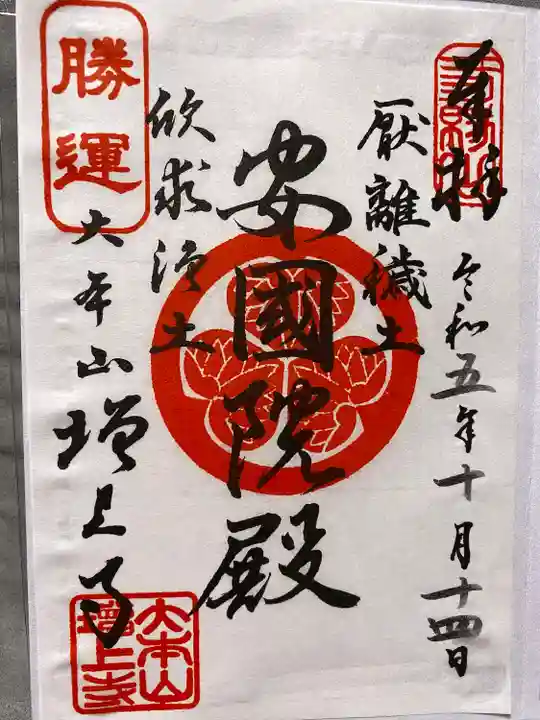 奉拝
令和五年十月十四日
厭離穢土
安國院殿
欣求浄土
勝運
大本山増上寺
大本山
増上寺